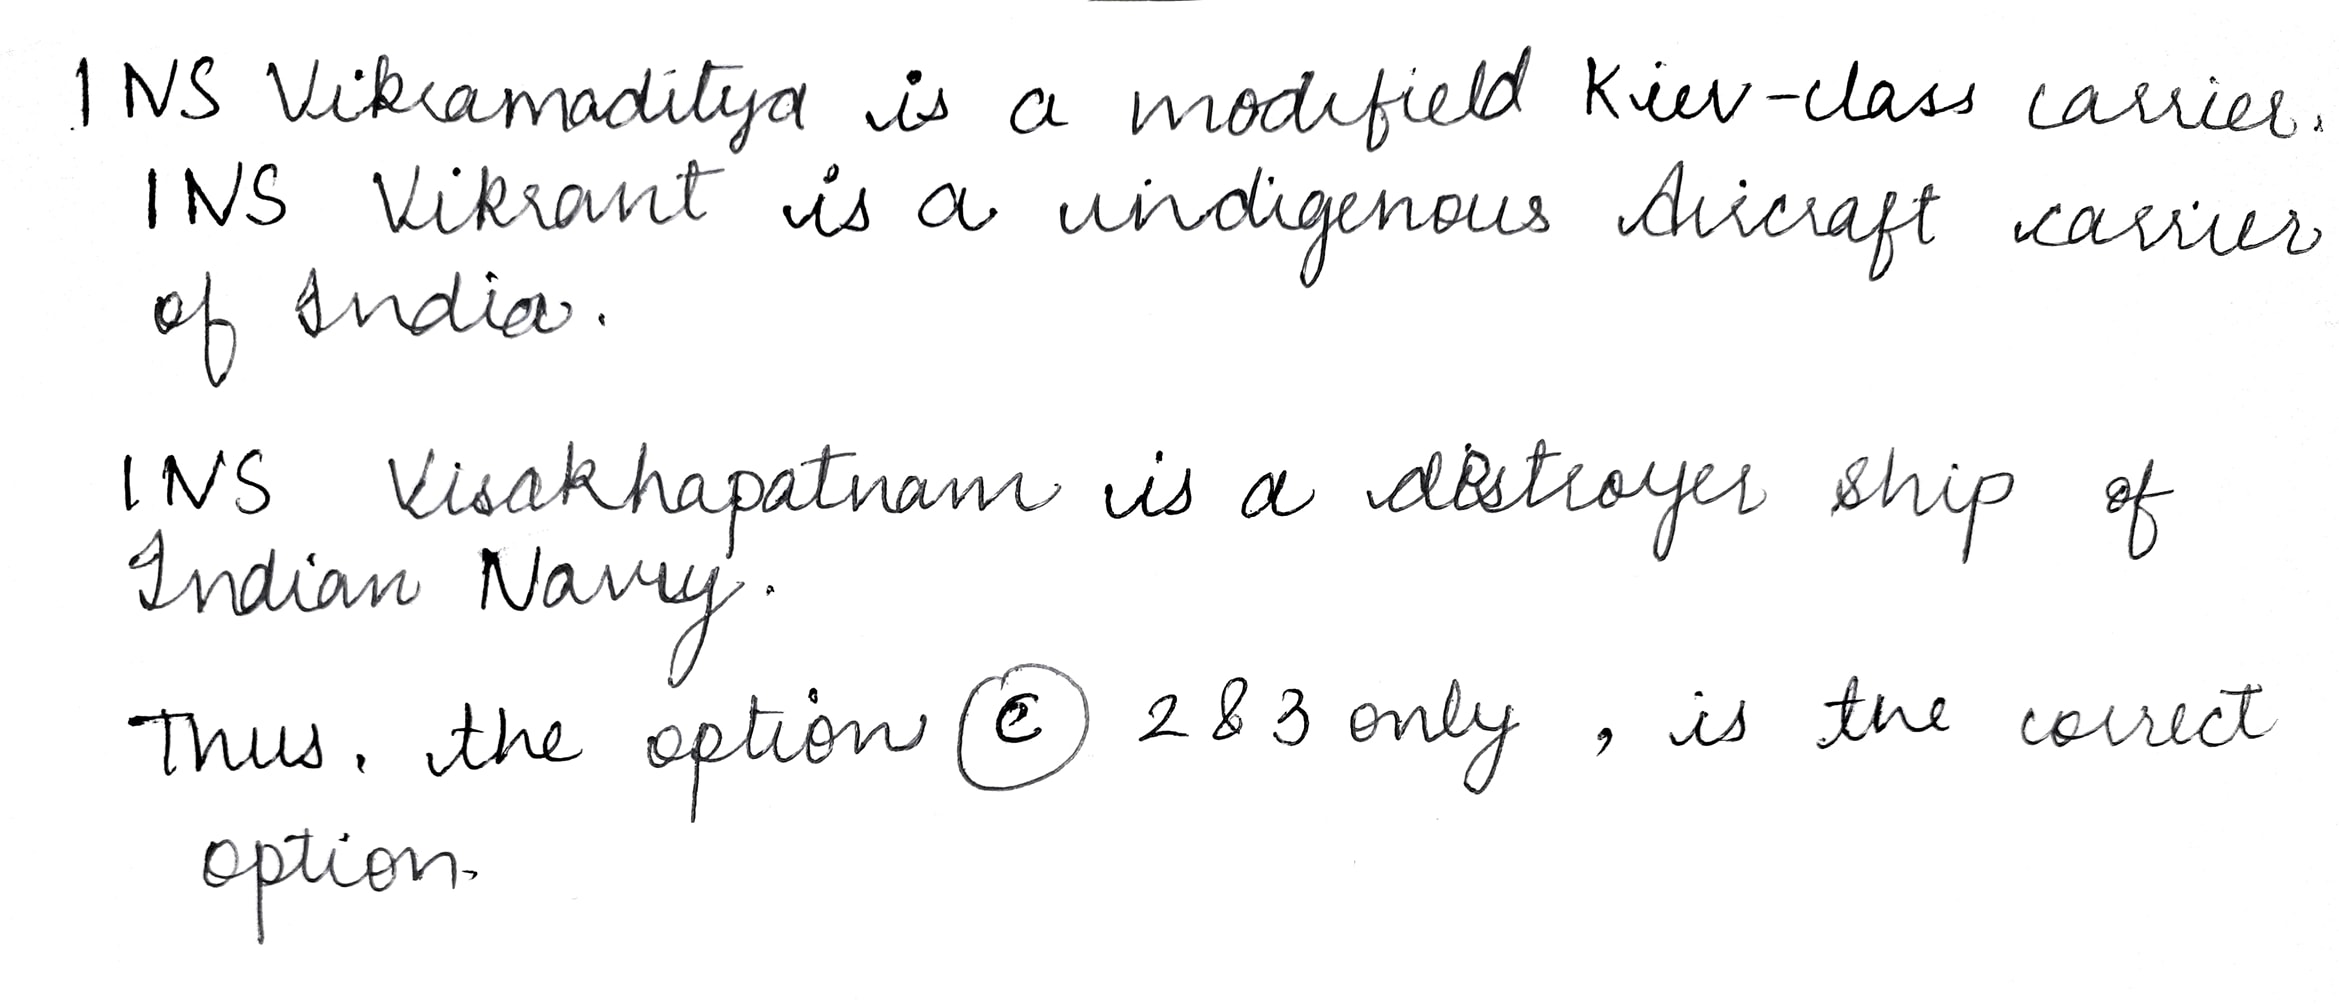 INS Vikramaditya is a modifield Kiev-class carrier.
INS Vikrant is a indigenous Aircraft carrier
of India.
INS Visakhapatnam is a destroyer ship of
Indian Navy.
Thus, the option (C) 2 & 3 only, is the correct
option.